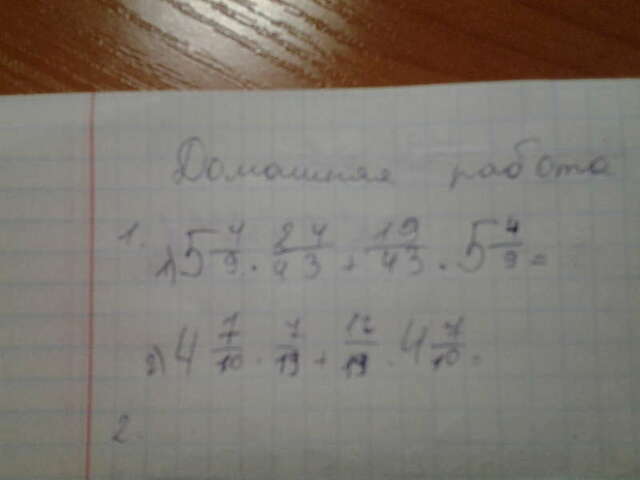 Домашняя работа
1. 1) 5 4/9 · 24/43 + 19/43 · 5 4/9 =
2) 4 7/10 · 7/19 + 12/19 · 4 7/10 =
2.